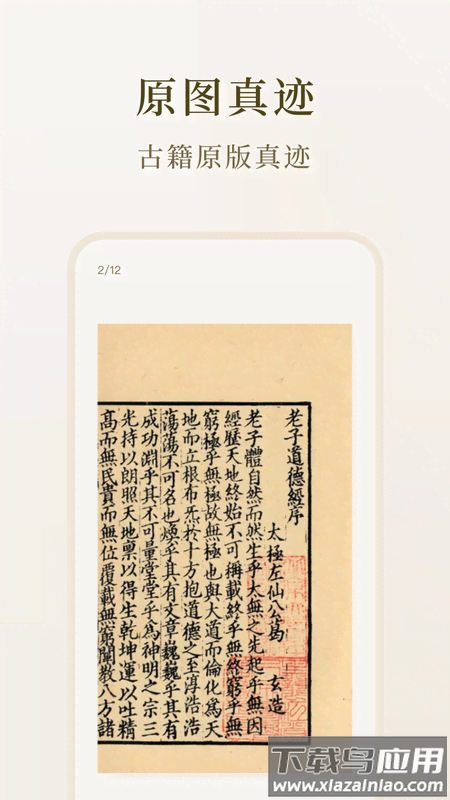 原图真迹
古籍原版真迹
2/12
老子道德經序
太極左仙公葛 玄造
老子體自然而然生乎太無之先起乎無因
經歷天地終始不可稱載終乎無終窮乎無
窮極乎無極故無極也與大道而倫化為天
地而立根布炁於十方抱道德之至淳浩浩
蕩蕩不可名也煥乎其有文章巍巍乎其有
成功淵乎其不可量堂堂乎為神明之宗三
光持以朗照天地禀以得生乾坤運以吐精
高而無民貴而無位覆載無窮闡教八方諸
下载鸟应用
www.xiazainiao.com